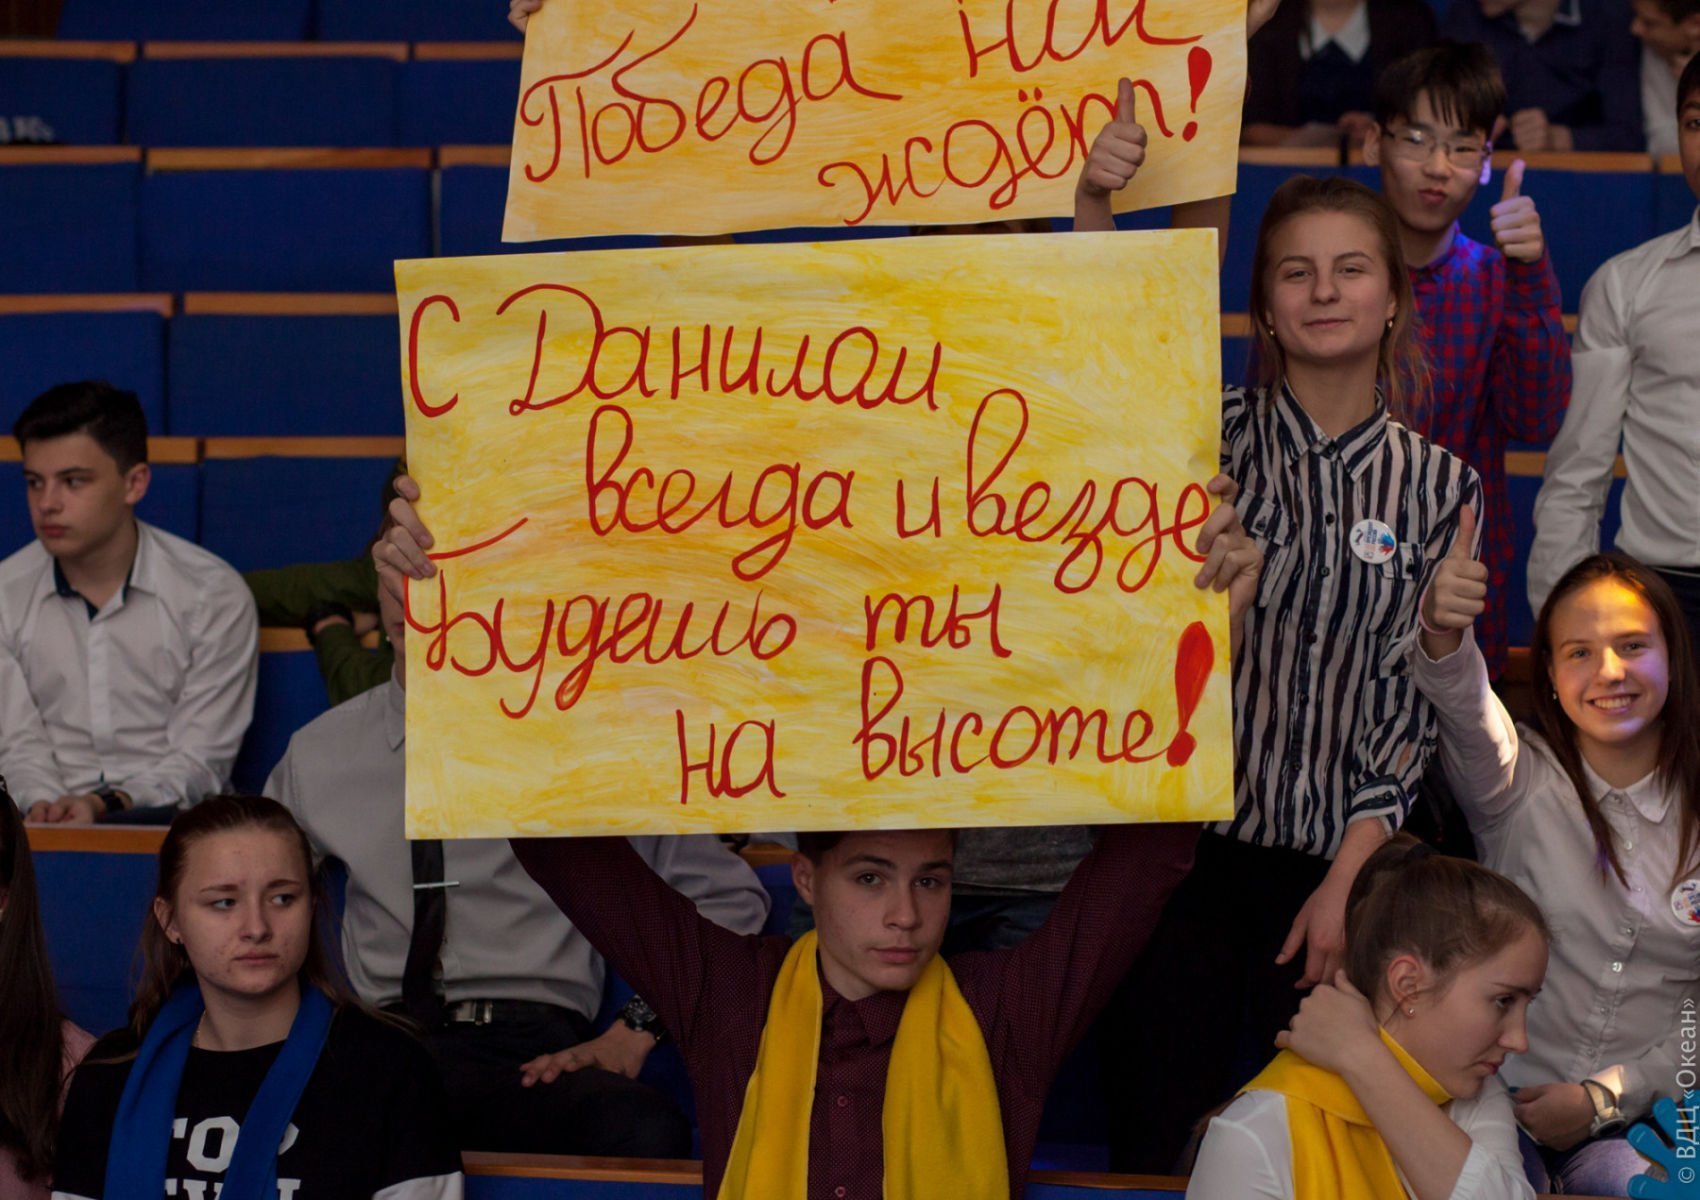 Победа нас
ждёт!
С Данилом
всегда и везде
Будешь ты
на высоте!
TOP
© ВДЦ «Океан»